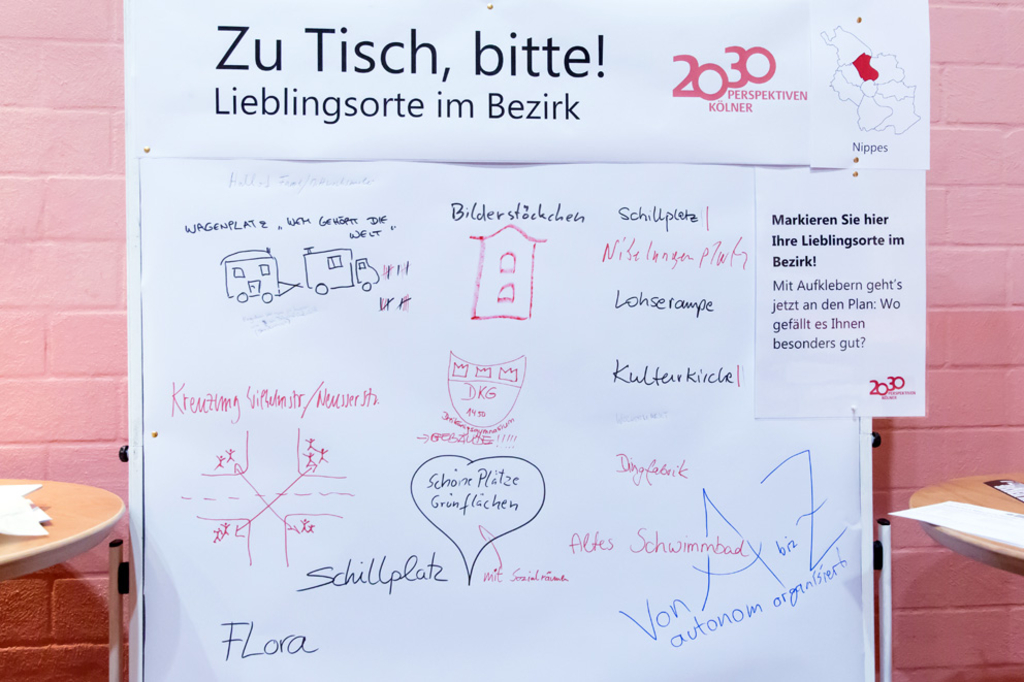 Zu Tisch, bitte!
Lieblingsorte im Bezirk
2030
PERSPEKTIVEN
KÖLNER
Nippes
Markieren Sie hier
Ihre Lieblingsorte im
Bezirk!
Mit Aufklebern geht's
jetzt an den Plan: Wo
gefällt es Ihnen
besonders gut?
2030
WAGENPLATZ „WEM GEHÖRT DIE
WELT"
Bilderstöckchen
Schillpletz
Nibelungenplatz
Lohserampe
Kulturkirche
DKG
1450
Dreikönigsgymnasium
→GEBÄUDE!!!!!
Kreuzung Wilhelmstr/Neusserstr.
Schöne Plätze
Grünflächen
mit Sozialräumen
Dingfabrik
Altes Schwimmbad
Schillplatz
Von A biz Z
autonom organisiert
FLora